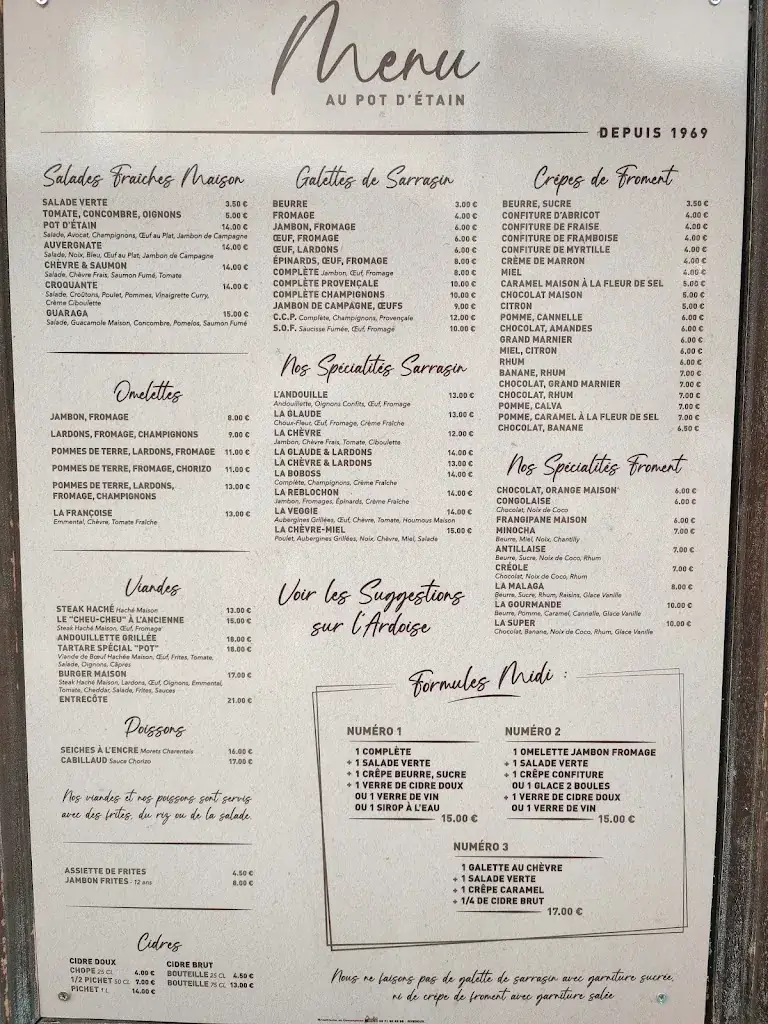 Menu
AU POT D'ÉTAIN
DEPUIS 1969
Salades Fraîches Maison
SALADE VERTE 3.50 €
TOMATE, CONCOMBRE, OIGNONS 5.00 €
POT D'ÉTAIN 14.00 €
Salade, Avocat, Champignons, Œuf au Plat, Jambon de Campagne
AUVERGNATE 14.00 €
Salade, Noix, Bleu, Œuf au Plat, Jambon de Campagne
CHÈVRE & SAUMON 14.00 €
Salade, Chèvre Frais, Saumon Fumé, Tomate
CROQUANTE 14.00 €
Salade, Croûtons, Poulet, Pommes, Vinaigrette Curry,
Crème Ciboulette
GUARAGA 15.00 €
Salade, Guacamole Maison, Concombre, Pomelos, Saumon Fumé
Omelettes
JAMBON, FROMAGE 8.00 €
LARDONS, FROMAGE, CHAMPIGNONS 9.00 €
POMMES DE TERRE, LARDONS, FROMAGE 11.00 €
POMMES DE TERRE, FROMAGE, CHORIZO 11.00 €
POMMES DE TERRE, LARDONS, 13.00 €
FROMAGE, CHAMPIGNONS
LA FRANÇOISE 13.00 €
Emmental, Chèvre, Tomate Fraîche
Viandes
STEAK HACHÉ Haché Maison 13.00 €
LE "CHEU-CHEU" À L'ANCIENNE 15.00 €
Steak Haché Maison, Œuf, Fromage
ANDOUILLETTE GRILLÉE 18.00 €
TARTARE SPÉCIAL "POT" 18.00 €
Viande de Bœuf Hachée Maison, Œuf, Frites, Tomate,
Salade, Oignons, Câpres
BURGER MAISON 17.00 €
Steak Haché Maison, Lardons, Œuf, Oignons, Emmental,
Tomate, Cheddar, Salade, Frites, Sauces
ENTRECÔTE 21.00 €
Poissons
SEICHES À L'ENCRE Morets Charentais 16.00 €
CABILLAUD Sauce Chorizo 17.00 €
Nos viandes et nos poissons sont servis
avec des frites, du riz ou de la salade.
ASSIETTE DE FRITES 4.50 €
JAMBON FRITES - 12 ans 8.00 €
Cidres
CIDRE DOUX
CHOPE 25 CL 4.00 €
1/2 PICHET 50 CL 7.00 €
PICHET 1 L 14.00 €
CIDRE BRUT
BOUTEILLE 25 CL 4.50 €
BOUTEILLE 75 CL 13.00 €
Galettes de Sarrasin
BEURRE 3.00 €
FROMAGE 4.00 €
JAMBON, FROMAGE 6.00 €
ŒUF, FROMAGE 6.00 €
ŒUF, LARDONS 6.00 €
ÉPINARDS, ŒUF, FROMAGE 8.00 €
COMPLÈTE Jambon, Œuf, Fromage 8.00 €
COMPLÈTE PROVENÇALE 10.00 €
COMPLÈTE CHAMPIGNONS 10.00 €
JAMBON DE CAMPAGNE, ŒUFS 9.00 €
C.C.P. Complète, Champignons, Provençale 12.00 €
S.O.F. Saucisse Fumée, Œuf, Fromage 10.00 €
Nos Spécialités Sarrasin
L'ANDOUILLE 13.00 €
Andouillette, Oignons Confits, Œuf, Fromage
LA GLAUDE 13.00 €
Choux-Fleur, Œuf, Fromage, Crème Fraîche
LA CHÈVRE 12.00 €
Jambon, Chèvre Frais, Tomate, Ciboulette
LA GLAUDE & LARDONS 14.00 €
LA CHÈVRE & LARDONS 13.00 €
LA BOBOSS 14.00 €
Complète, Champignons, Crème Fraîche
LA REBLOCHON 14.00 €
Jambon, Fromages, Épinards, Crème Fraîche
LA VEGGIE 14.00 €
Aubergines Grillées, Œuf, Chèvre, Tomate, Houmous Maison
LA CHÈVRE-MIEL 15.00 €
Poulet, Aubergines Grillées, Noix, Chèvre, Miel, Salade
Voir les Suggestions
sur l'Ardoise
Crêpes de Froment
BEURRE, SUCRE 3.50 €
CONFITURE D'ABRICOT 4.00 €
CONFITURE DE FRAISE 4.00 €
CONFITURE DE FRAMBOISE 4.00 €
CONFITURE DE MYRTILLE 4.00 €
CRÈME DE MARRON 4.00 €
MIEL 4.00 €
CARAMEL MAISON À LA FLEUR DE SEL 5.00 €
CHOCOLAT MAISON 5.00 €
CITRON 5.00 €
POMME, CANNELLE 6.00 €
CHOCOLAT, AMANDES 6.00 €
GRAND MARNIER 6.00 €
MIEL, CITRON 6.00 €
RHUM 6.00 €
BANANE, RHUM 7.00 €
CHOCOLAT, GRAND MARNIER 7.00 €
CHOCOLAT, RHUM 7.00 €
POMME, CALVA 7.00 €
POMME, CARAMEL À LA FLEUR DE SEL 7.00 €
CHOCOLAT, BANANE 6.50 €
Nos Spécialités Froment
CHOCOLAT, ORANGE MAISON 6.00 €
CONGOLAISE 6.00 €
Chocolat, Noix de Coco
FRANGIPANE MAISON 6.00 €
MINOCHA 7.00 €
Beurre, Miel, Noix, Chantilly
ANTILLAISE 7.00 €
Beurre, Sucre, Noix de Coco, Rhum
CRÉOLE 7.00 €
Chocolat, Noix de Coco, Rhum
LA MALAGA 8.00 €
Beurre, Sucre, Rhum, Raisins, Glace Vanille
LA GOURMANDE 10.00 €
Beurre, Pomme, Caramel, Cannelle, Glace Vanille
LA SUPER 10.00 €
Chocolat, Banane, Noix de Coco, Rhum, Glace Vanille
Formules Midi :
NUMÉRO 1
1 COMPLÈTE
+ 1 SALADE VERTE
+ 1 CRÊPE BEURRE, SUCRE
+ 1 VERRE DE CIDRE DOUX
OU 1 VERRE DE VIN
OU 1 SIROP À L'EAU
15.00 €
NUMÉRO 2
1 OMELETTE JAMBON FROMAGE
+ 1 SALADE VERTE
+ 1 CRÊPE CONFITURE
OU 1 GLACE 2 BOULES
+ 1 VERRE DE CIDRE DOUX
OU 1 VERRE DE VIN
15.00 €
NUMÉRO 3
1 GALETTE AU CHÈVRE
+ 1 SALADE VERTE
+ 1 CRÊPE CARAMEL
+ 1/4 DE CIDRE BRUT
17.00 €
Nous ne faisons pas de galette de sarrasin avec garniture sucrée,
ni de crêpe de froment avec garniture salée